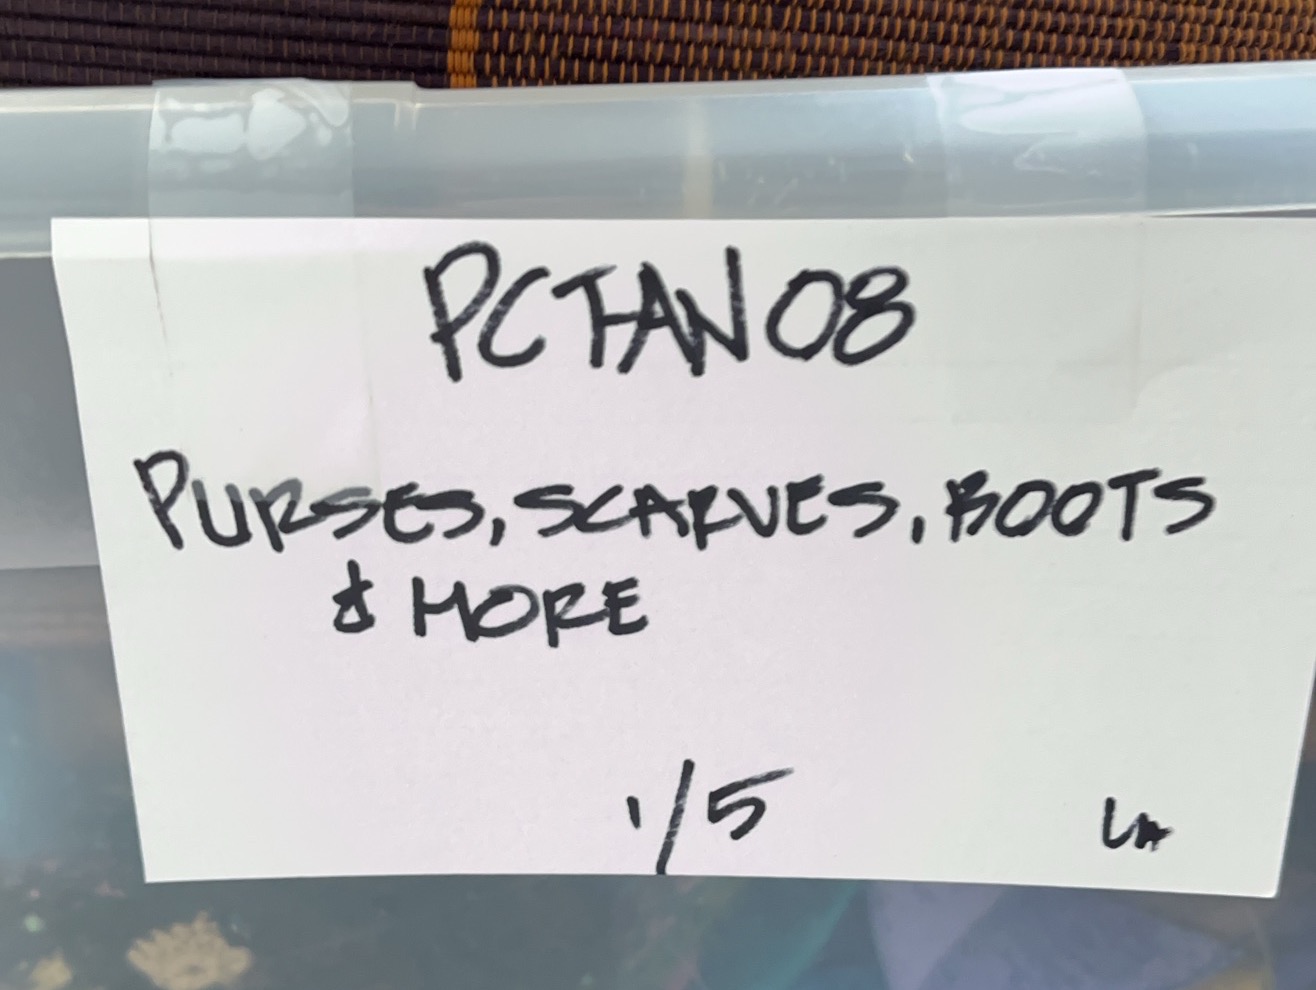 PCTAN08
PURSES, SCARVES, BOOTS
& MORE
1/5 LA